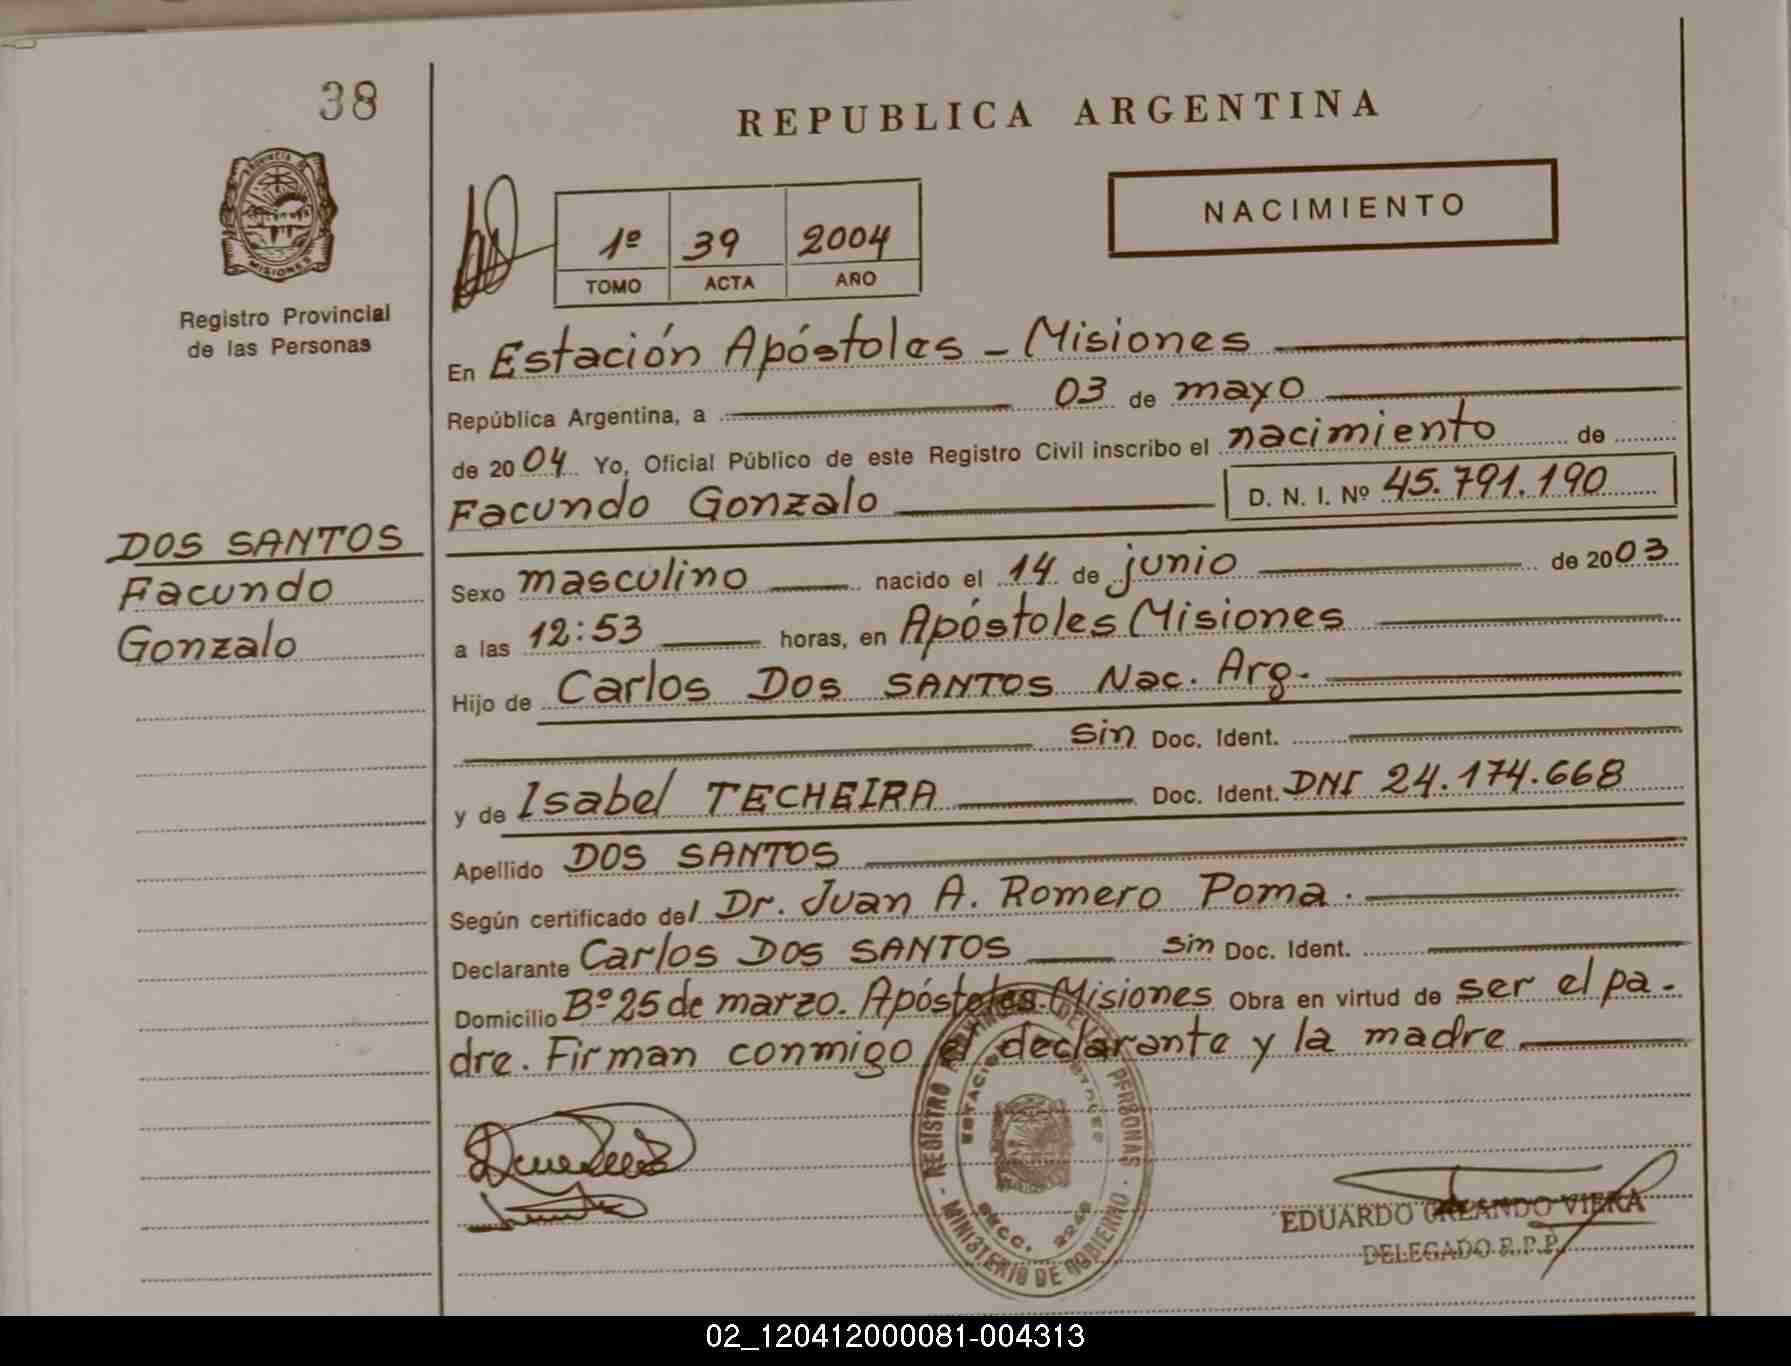 38
REPUBLICA ARGENTINA
NACIMIENTO
PROVINCIA DE
MISIONES
Registro Provincial
de las Personas
1º 39 2004
TOMO ACTA AÑO
En Estación Apóstoles - Misiones
República Argentina, a 03 de mayo
de 2004 Yo, Oficial Público de este Registro Civil inscribo el nacimiento de
Facundo Gonzalo D. N. I. Nº 45.791.190
DOS SANTOS
Facundo
Gonzalo
Sexo masculino nacido el 14 de junio de 2003
a las 12:53 horas, en Apóstoles Misiones
Hijo de Carlos Dos SANTOS Nac. Arg.
sin Doc. Ident.
y de Isabel TECHEIRA Doc. Ident. DNI 24.174.668
Apellido DOS SANTOS
Según certificado del Dr. Juan A. Romero Poma.
Declarante Carlos DOS SANTOS sin Doc. Ident.
Domicilio Bº 25 de marzo. Apóstoles-Misiones Obra en virtud de ser el pa-
dre. Firman conmigo el declarante y la madre
REGISTRO PROVINCIAL DE LAS PERSONAS
MINISTERIO DE GOBIERNO
ESTACION APOSTOLES
SECC. 2240
EDUARDO ORLANDO VIERA
DELEGADO R.P.P.
02_120412000081-004313